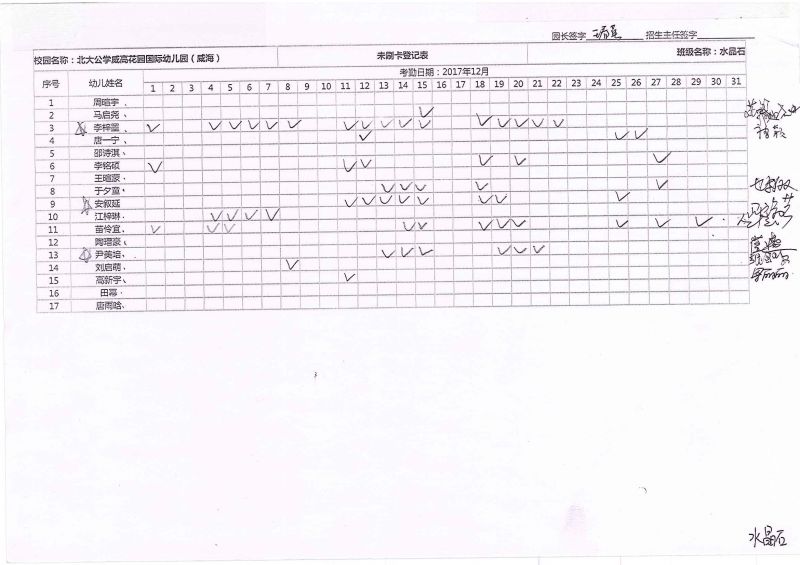 园长签字 招生主任签字
校园名称：北大公学威高花园国际幼儿园（威海） 未刷卡登记表 班级名称：水晶石
序号 幼儿姓名 考勤日期：2017年12月
1 2 3 4 5 6 7 8 9 10 11 12 13 14 15 16 17 18 19 20 21 22 23 24 25 26 27 28 29 30 31
1 周暄宇
2 马启尧 ✓
3 李梓墨 ✓ ✓ ✓ ✓ ✓ ✓ ✓ ✓ ✓ ✓ ✓ ✓ ✓ ✓ ✓ ✓
4 唐一宁 ✓ ✓ ✓
5 邵诗淇
6 李铭硕 ✓ ✓ ✓ ✓ ✓ ✓
7 王暄蒙
8 于夕童 ✓ ✓ ✓ ✓ ✓
9 安叙延 ✓ ✓ ✓ ✓ ✓ ✓ ✓ ✓
10 江梓琳 ✓ ✓ ✓ ✓
11 苗伶宜 ✓ ✓ ✓ ✓ ✓ ✓ ✓ ✓ ✓ ✓ ✓
12 陶瑨豪
13 尹美培 ✓ ✓ ✓ ✓ ✓ ✓
14 刘启萌 ✓
15 高新宇 ✓
16 田幂
17 唐雨晗
水晶石